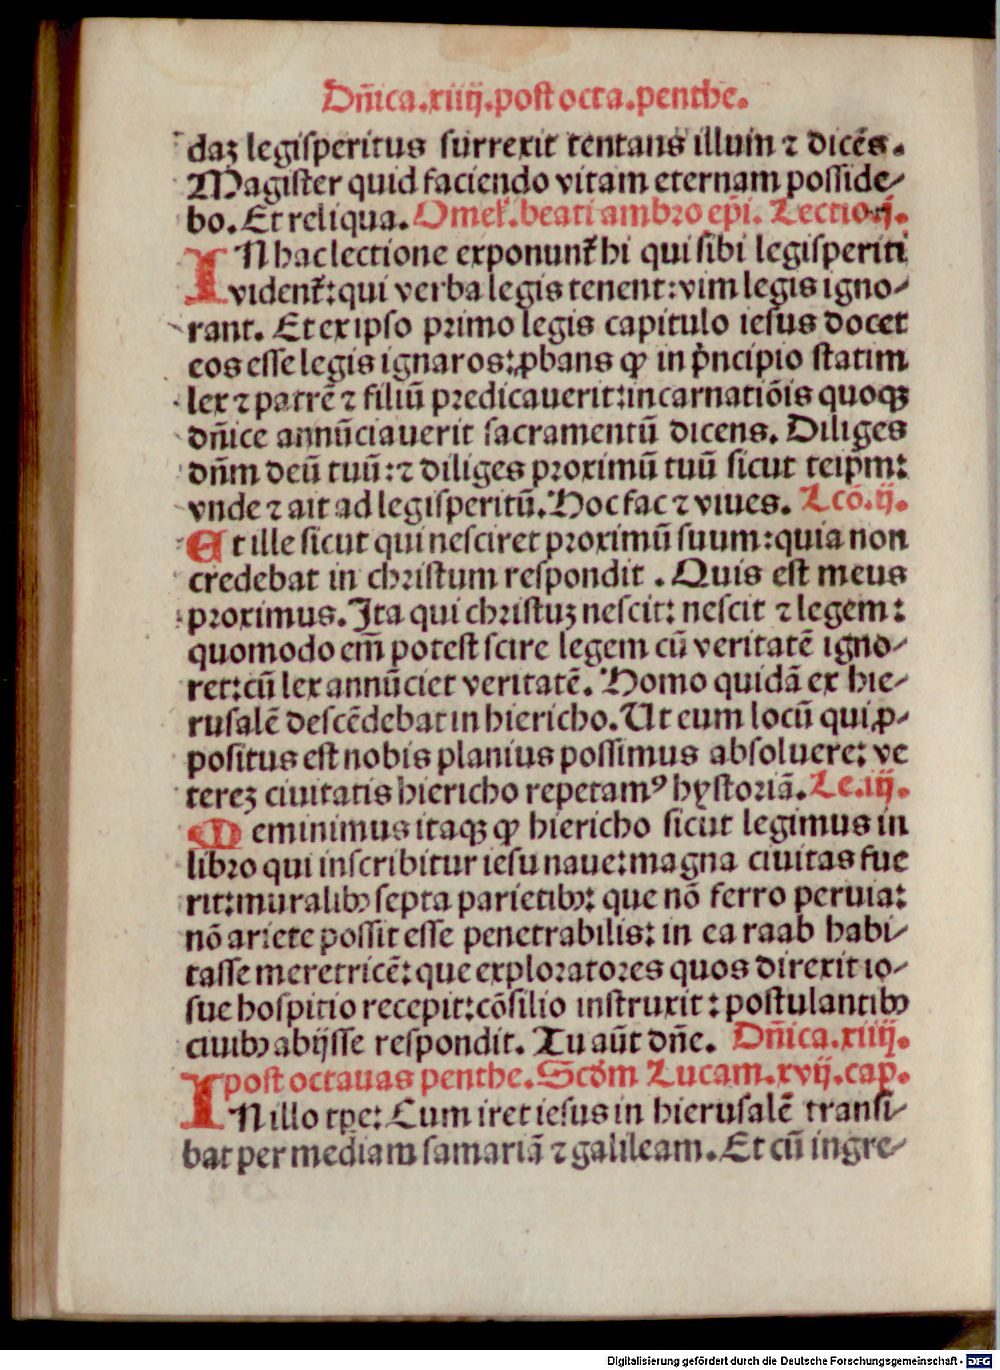 Dn̄ica.xiiij.post octa.penthe.
daꝫ legisperitus surrexit tentans illum ⁊ dicēs.
Magister quid faciendo vitam eternam posside⸗
bo. Et reliqua. Omeł. beati ambro ep̄i. Lectio .j.
IN hac lectione exponunt᷑ hi qui sibi legisperiti
vident᷑: qui verba legis tenent: vim legis igno⸗
rant. Et ex ipso primo legis capitulo iesus docet
eos esse legis ignaros: ꝓbans ꝙ in pͥncipio statim
lex ⁊ patrē ⁊ filiū predicauerit: incarnatiōis quoqꝫ
dn̄ice annūciauerit sacramentū dicens. Diliges
dn̄m deū tuū: ⁊ diliges proximū tuū sicut teip̄m:
vnde ⁊ ait ad legisperitū. Hoc fac ⁊ viues. Lcō.ij.
Et ille sicut qui nesciret proximū suum: quia non
credebat in christum respondit . Quis est meus
proximus. Ita qui christuꝫ nescit: nescit ⁊ legem:
quomodo em̄ potest scire legem cū veritatē igno⸗
ret: cū lex annūciet veritatē. Homo quidā ex hie⸗
rusalē descēdebat in hiericho. Ut eum locū qui ꝓ⸗
positus est nobis planius possimus absoluere: ve
tereꝫ ciuitatis hiericho repetamꝰ hystoriā. Le.iij.
Meminimus itaqꝫ ꝙ hiericho sicut legimus in
libro qui inscribitur iesu naue: magna ciuitas fue
rit: muralibꝫ septa parietibꝫ: que nō ferro peruia:
nō ariete possit esse penetrabilis: in ea raab habi⸗
tasse meretricē: que exploratores quos direxit io⸗
sue hospitio recepit: cōsilio instruxit : postulantibꝫ
ciuibꝫ abijsse respondit. Tu aūt dn̄e. Dn̄ica.xiiij.
post octauas penthe. Scd̄m Lucam.xvij.cap̄.
IN illo tp̄e: Cum iret iesus in hierusalē transi⸗
bat per mediam samariā ⁊ galileam. Et cū ingre⸗
Digitalisierung gefördert durch die Deutsche Forschungsgemeinschaft - DFG